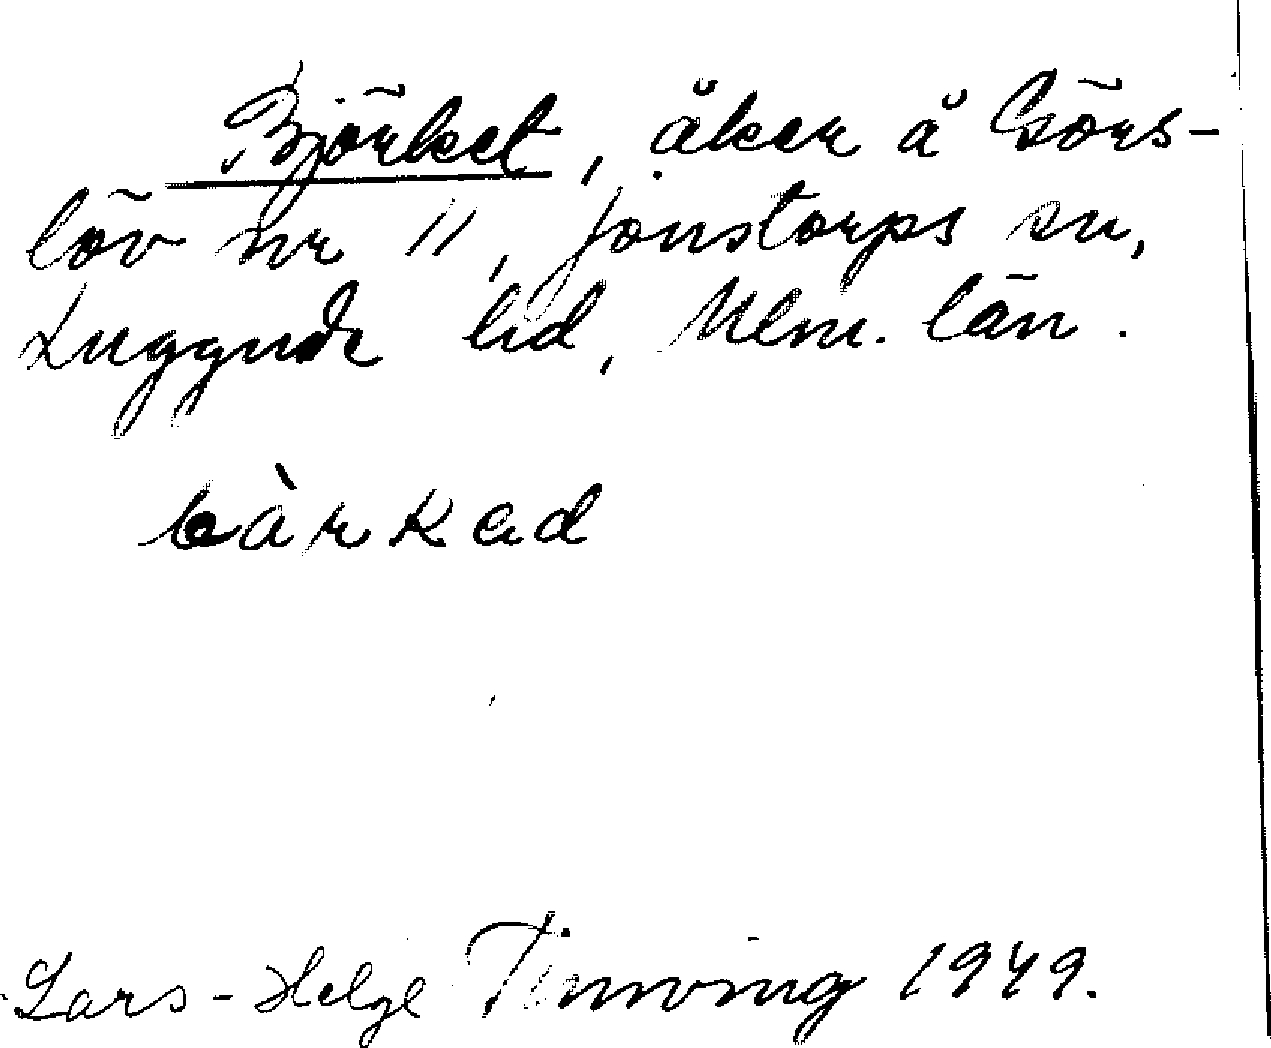 Björket, åker å Görs-
löv nr 11, Jonstorps sn,
Luggude hd, Mlm. län.
bàrkad
Lars-Helge
1949.